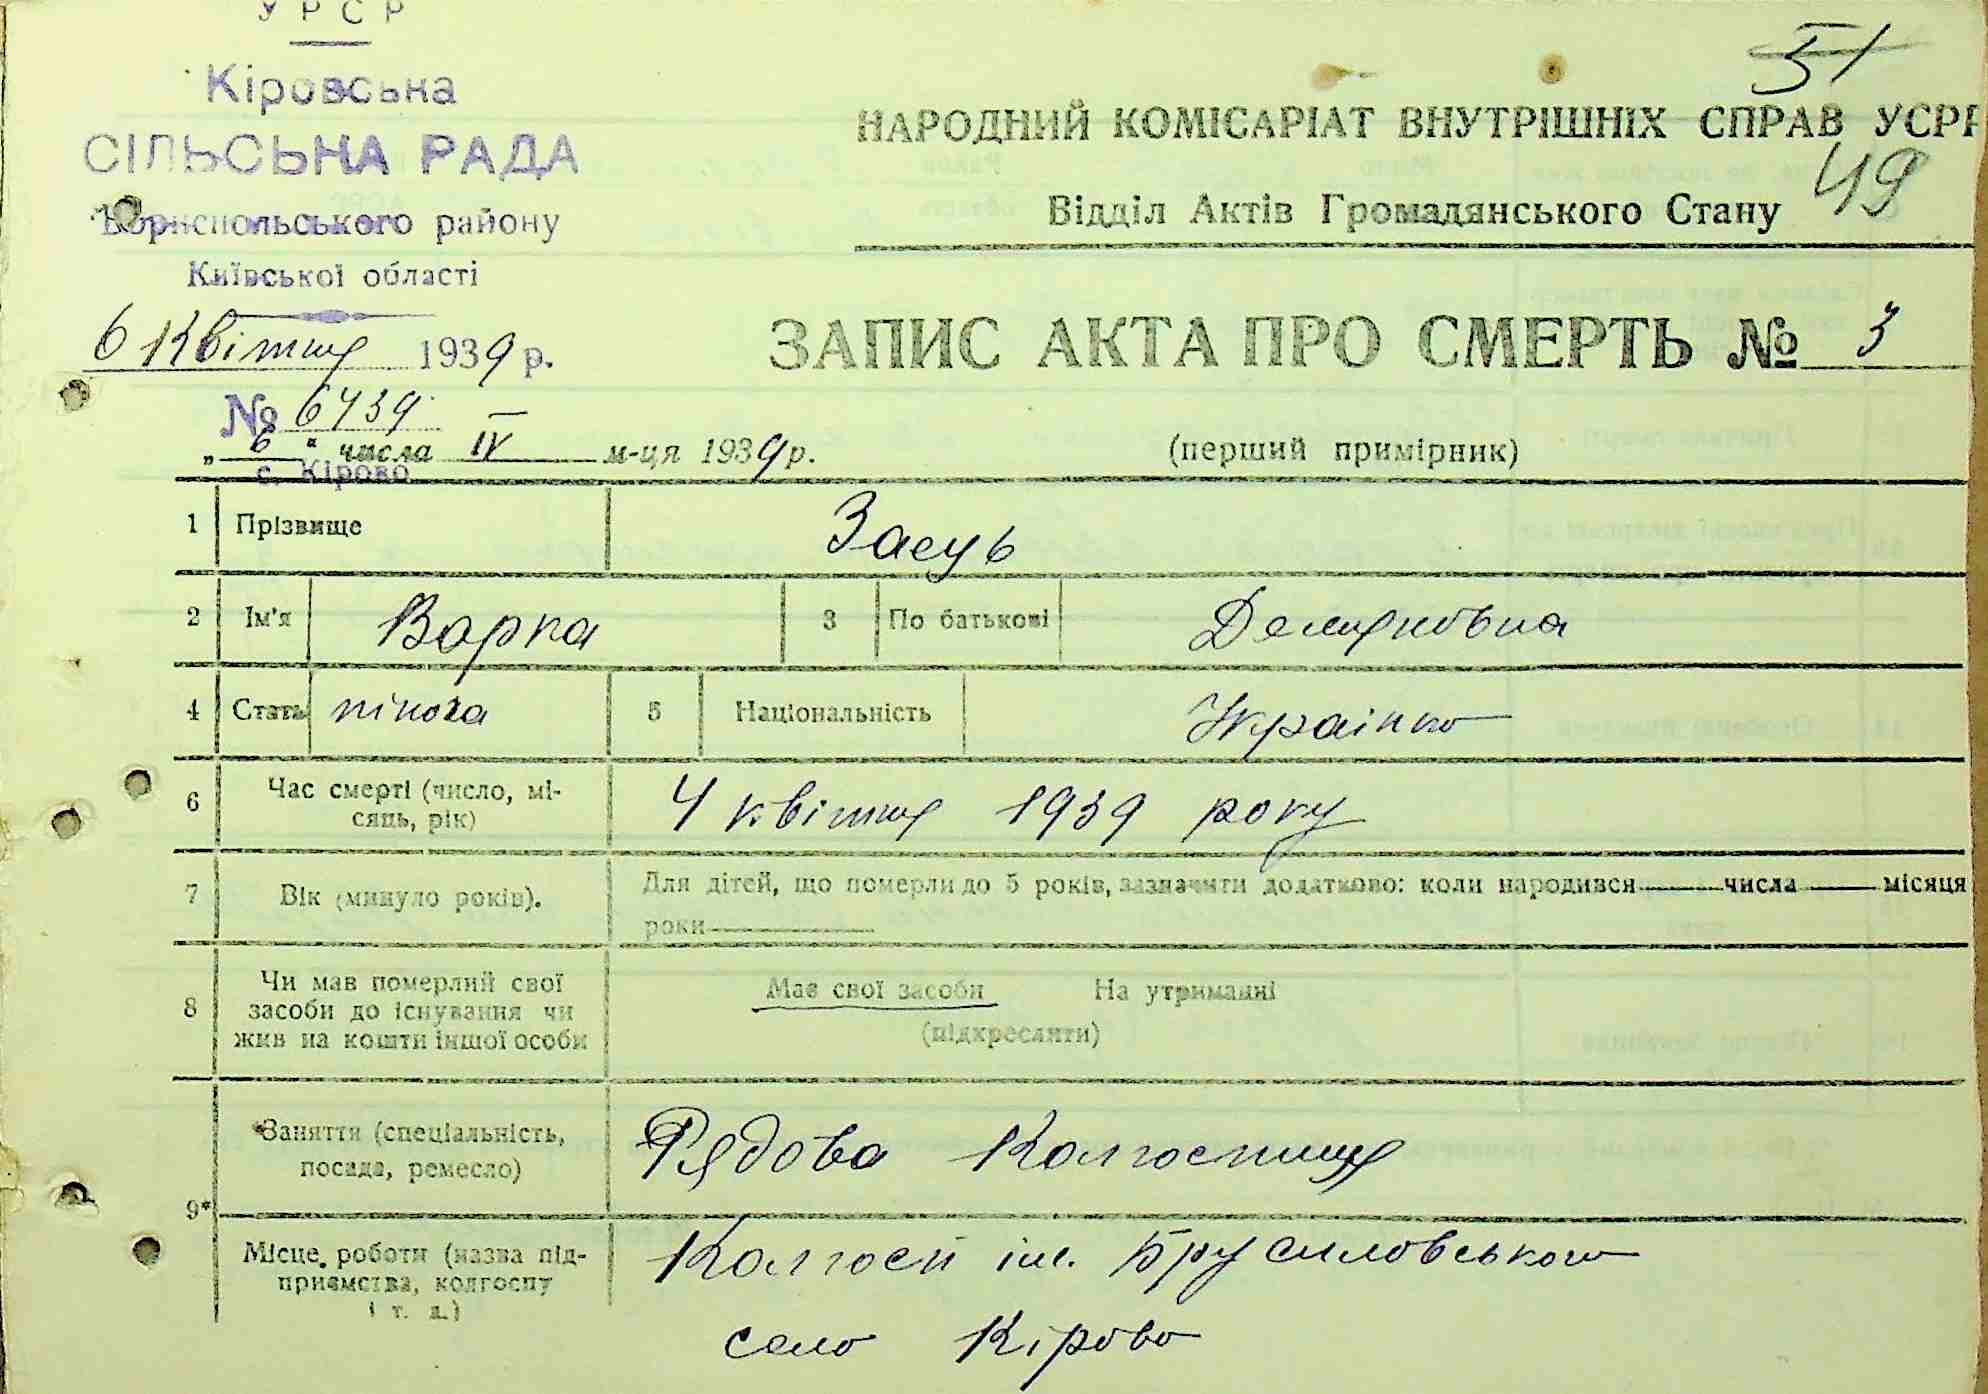 УРСР
Кіровська
СІЛЬСЬКА РАДА
Бориспольського району
Київської області
6 Квітня 1939 р.
№ 6439
с. Кірово
51
НАРОДНИЙ КОМІСАРІАТ ВНУТРІШНІХ СПРАВ УСРР
49
Відділ Актів Громадянського Стану
ЗАПИС АКТА ПРО СМЕРТЬ № 3
„ 6 " числа IV м-ця 1939 р.
(перший примірник)
1 Прізвище Заєць
2 Ім'я Варка 3 По батькові Демяновна
4 Стать жіноча 5 Національність Українка
6 Час смерті (число, мі-
сяць, рік) 4 квітня 1939 року
7 Вік (минуло років). Для дітей, що померли до 5 років, зазначити додатково: коли народився числа місяця
роки
8 Чи мав померлий свої
засоби до існування чи
жив на кошти іншої особи
Має свої засоби На утриманні
(підкреслити)
9* Заняття (спеціальність,
посада, ремесло) Рядова Колгоспниця
Місце роботи (назва під-
приємства, колгоспу
і т. д.)
Колгосп ім. Брусиловського
село Кірово